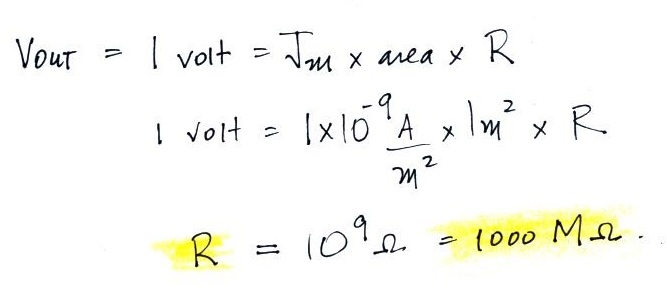 VOUT = 1 volt = Jm x area x R
1 volt = 1x10⁻⁹ A/m² x 1m² x R
R = 10⁹Ω = 1000 MΩ.